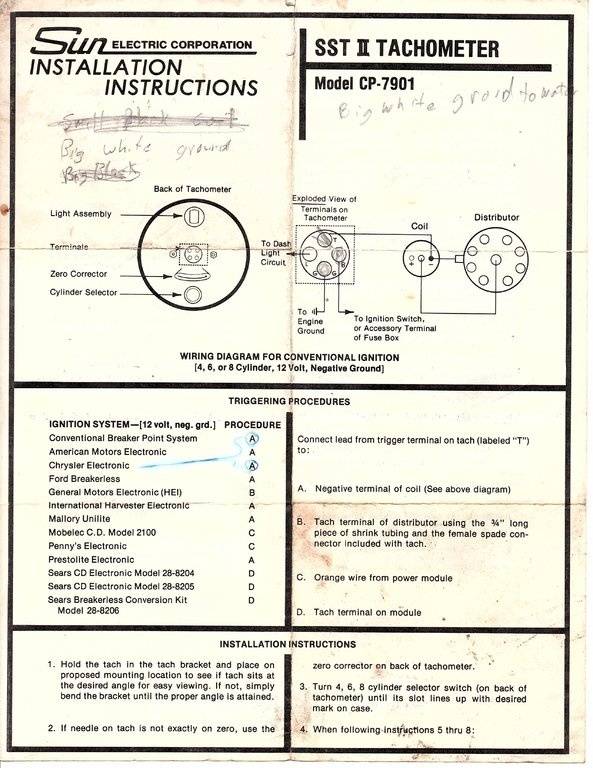 Sun ELECTRIC CORPORATION
INSTALLATION
INSTRUCTIONS
SST II TACHOMETER
Model CP-7901
Big white ground to motor
Big white ground
Big Black
Back of Tachometer
Light Assembly
Terminals
Zero Corrector
Cylinder Selector
Exploded View of
Terminals on
Tachometer
To Dash
Light
Circuit
T
L
B
G
G
To
Engine
Ground
To Ignition Switch,
or Accessory Terminal
of Fuse Box
Coil
+
-
Distributor
WIRING DIAGRAM FOR CONVENTIONAL IGNITION
[4, 6, or 8 Cylinder, 12 Volt, Negative Ground]
TRIGGERING PROCEDURES
IGNITION SYSTEM—[12 volt, neg. grd.] PROCEDURE
Conventional Breaker Point System A
American Motors Electronic A
Chrysler Electronic A
Ford Breakerless A
General Motors Electronic (HEI) B
International Harvester Electronic A
Mallory Unilite A
Mobelec C.D. Model 2100 C
Penny's Electronic C
Prestolite Electronic A
Sears CD Electronic Model 28-8204 D
Sears CD Electronic Model 28-8205 D
Sears Breakerless Conversion Kit D
Model 28-8206
Connect lead from trigger terminal on tach (labeled "T")
to:
A. Negative terminal of coil (See above diagram)
B. Tach terminal of distributor using the ¾" long
piece of shrink tubing and the female spade con-
nector included with tach.
C. Orange wire from power module
D. Tach terminal on module
INSTALLATION INSTRUCTIONS
1. Hold the tach in the tach bracket and place on
proposed mounting location to see if tach sits
at the desired angle for easy viewing. If not, simply
bend the bracket until the proper angle is attained.
2. If needle on tach is not exactly on zero, use the
zero corrector on back of tachometer.
3. Turn 4, 6, 8 cylinder selector switch (on back of
tachometer) until its slot lines up with desired
mark on case.
4. When following instructions 5 thru 8: